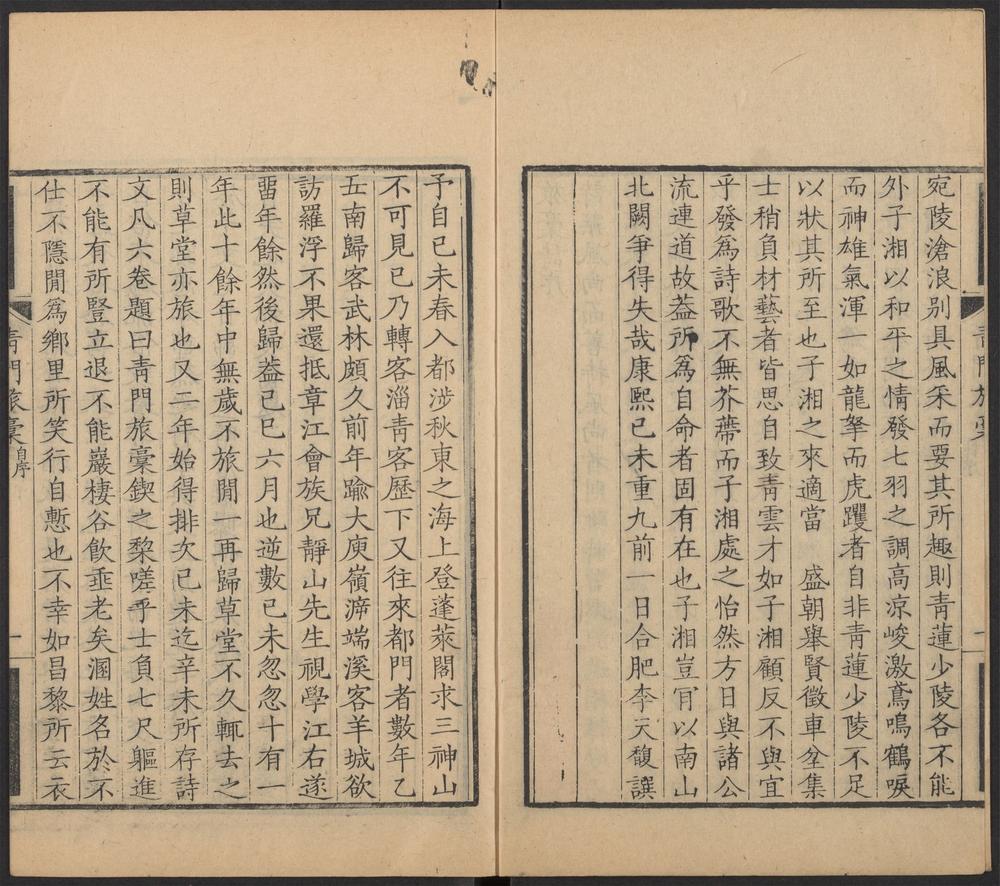 宛陵滄浪别具風采而要其所趣則靑蓮少陵各不能
外子湘以和平之情發七羽之調高凉峻激鳶鳴鶴唳
而神雄氣渾一如龍拏而虎躩者自非靑蓮少陵不足
以狀其所至也子湘之來適當 盛朝舉賢徵車坌集
士稍負材藝者皆思自致靑雲才如子湘顧反不與宜
乎發爲詩歌不無芥蔕而子湘處之怡然方日與諸公
流連道故葢所爲自命者固有在也子湘豈肎以南山
北闕爭得失哉康熙己未重九前一日合肥李天馥譔
予自己未春入都涉秋東之海上登蓬萊閣求三神山
不可見已乃轉客淄靑客歷下又往來都門者數年乙
五南歸客武林頗久前年踰大庾嶺㳺端溪客羊城欲
訪羅浮不果還抵章江會族兄靜山先生視學江右遂
畱年餘然後歸葢己巳六月也逆數己未忽忽十有一
年此十餘年中無歲不旅閒一再歸草堂不久輒去之
則草堂亦旅也又二年始得排次己未迄辛未所存詩
文凡六卷題曰靑門旅稾鍥之棃嗟乎士負七尺軀進
不能有所豎立退不能巖棲谷飮垂老矣溷姓名於不
仕不隱閒爲鄉里所笑行自慙也不幸如昌黎所云衣
靑門旅稾 自序 一